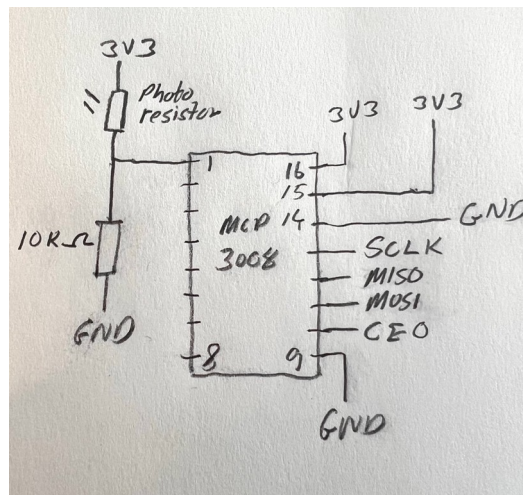 3V3
Photo
resistor
3V3
3V3
1
16
15
MCP
14
GND
3008
SCLK
10KΩ
MISO
MOSI
CEO
GND
8
9
GND